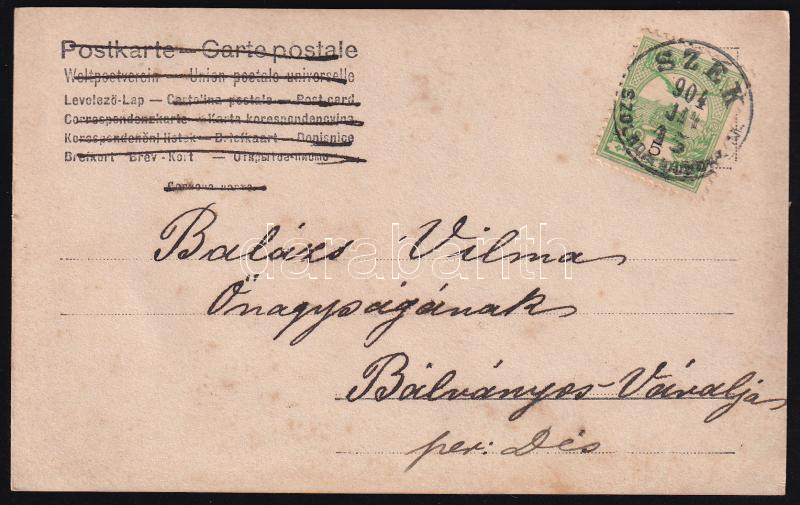 Postkarte — Carte postale
Weltpostverein — Union postale universelle
Levelező-Lap — Cartolina postale — Post card
Correspondenzkarte — Karta korespondencyjna
Korespondenční listek — Briefkaart — Dopisnice
Brefkort — Brev-Kort — Открытое письмо
SZÉK
904
JAN
5
SZOLNOK-DOBOKA M.
Balázs Vilma
Őnagyságának
Bálványos-Váralja
per: Dés
darabanth